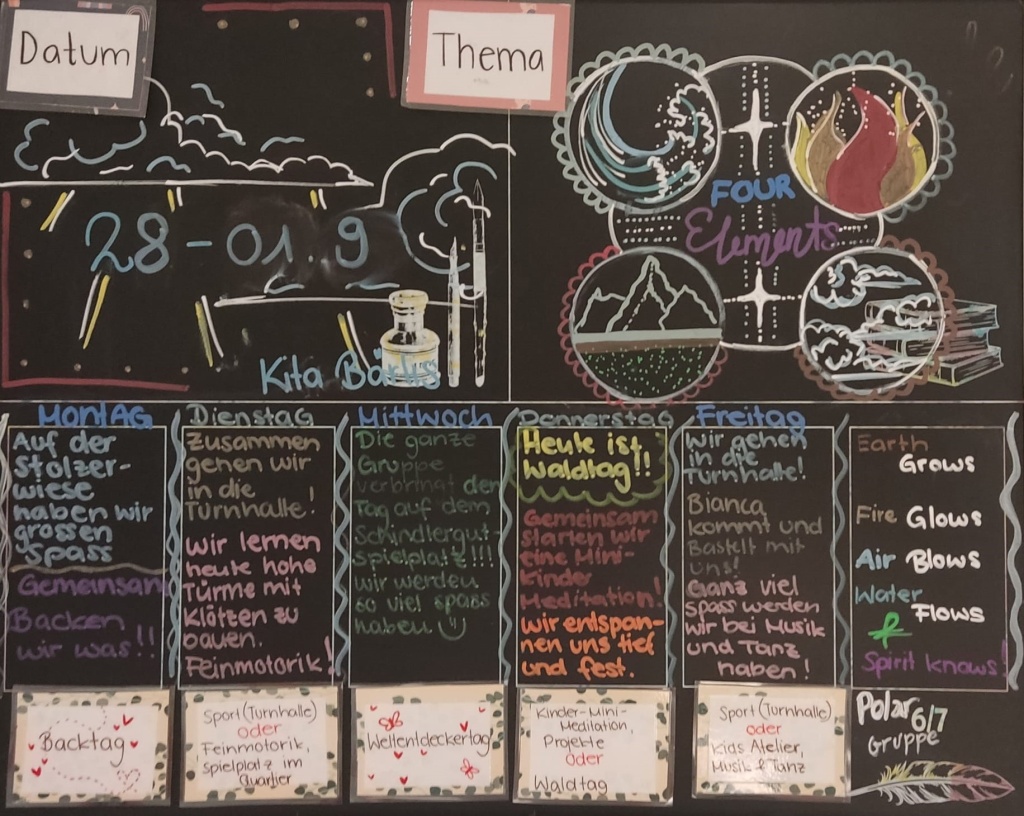 Datum
Thema
28-01.9
Kita Bärlis
FOUR
Elements
Montag
Auf der
Stolzer-
wiese
haben wir
grossen
Spass
Gemeinsam
Backen
wir was!!
Dienstag
Zusammen
gehen wir
in die
Turnhalle!
wir lernen
heute hohe
Türme mit
Klötzen zu
bauen.
Feinmotorik!
Mittwoch
Die ganze
Gruppe
verbringt den
Tag auf dem
Schindlergut-
spielplatz!!!
wir werden
so viel spass
haben
Donnerstag
Heute ist
Waldtag!!
Gemeinsam
starten wir
eine Mini-
Kinder
Meditation!
wir entspan-
nen uns tief
und fest.
Freitag
Wir gehen
in die
Turnhalle!
Bianca
kommt und
Bastelt mit
uns!
Ganz viel
spass werden
wir bei Musik
und Tanz
haben!
Earth
Grows
Fire Glows
Air Blows
Water
Flows
&
Spirit knows!
Backtag
Sport (Turnhalle)
oder
Feinmotorik,
spielplatz im
Quartier
Weltentdeckertag
Kinder-Mini-
Meditation,
Projekte
oder
Waldtag
Sport (Turnhalle)
oder
Kids Atelier,
Musik & Tanz
Polar 6/7
Gruppe